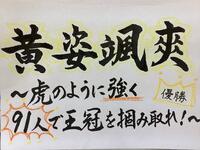 黄姿颯爽
～虎のように強く
優勝
91人で王冠を掴み取れ！～